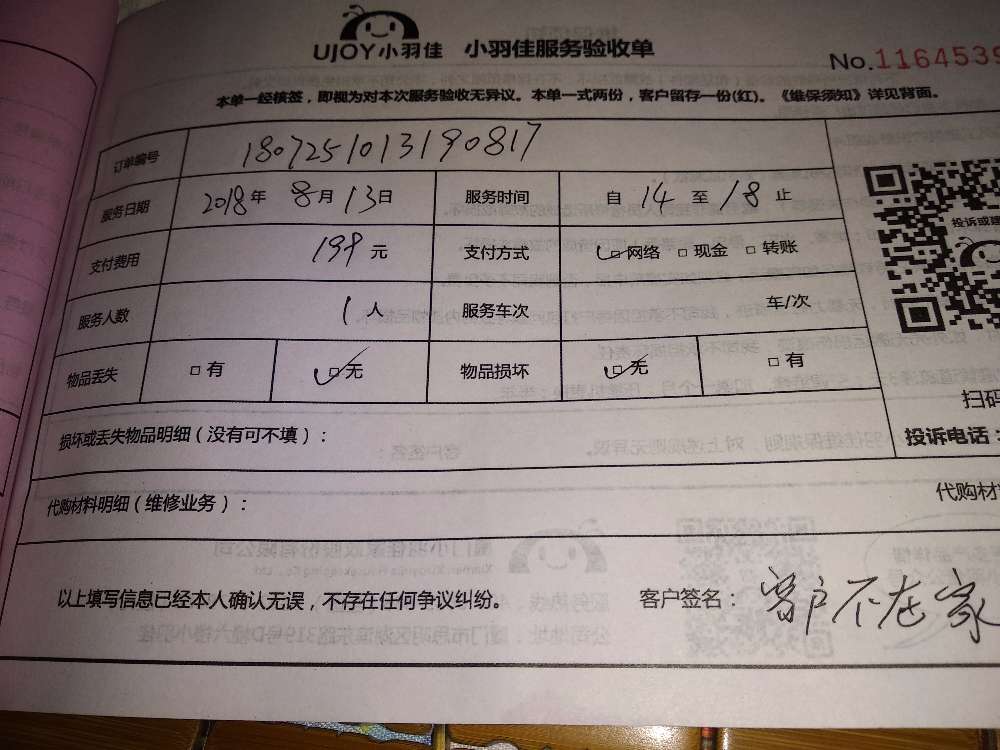 UJOY小羽佳 小羽佳服务验收单
No.1164539
本单一经核签，即视为对本次服务验收无异议。本单一式两份，客户留存一份(红)。《维保须知》详见背面。
订单编号 1807251013190817
服务日期 2018年 8月 13日 服务时间 自 14 至 18 止
投诉或建
支付费用 199 元 支付方式 □网络 □现金 □转账
服务人数 1 人 服务车次 车/次
物品丢失 □有 □无 物品损坏 □无 □有
扫码
损坏或丢失物品明细（没有可不填）：
投诉电话：
代购材料明细（维修业务）： 代购材
以上填写信息已经本人确认无误，不存在任何争议纠纷。 客户签名： 客户不在家